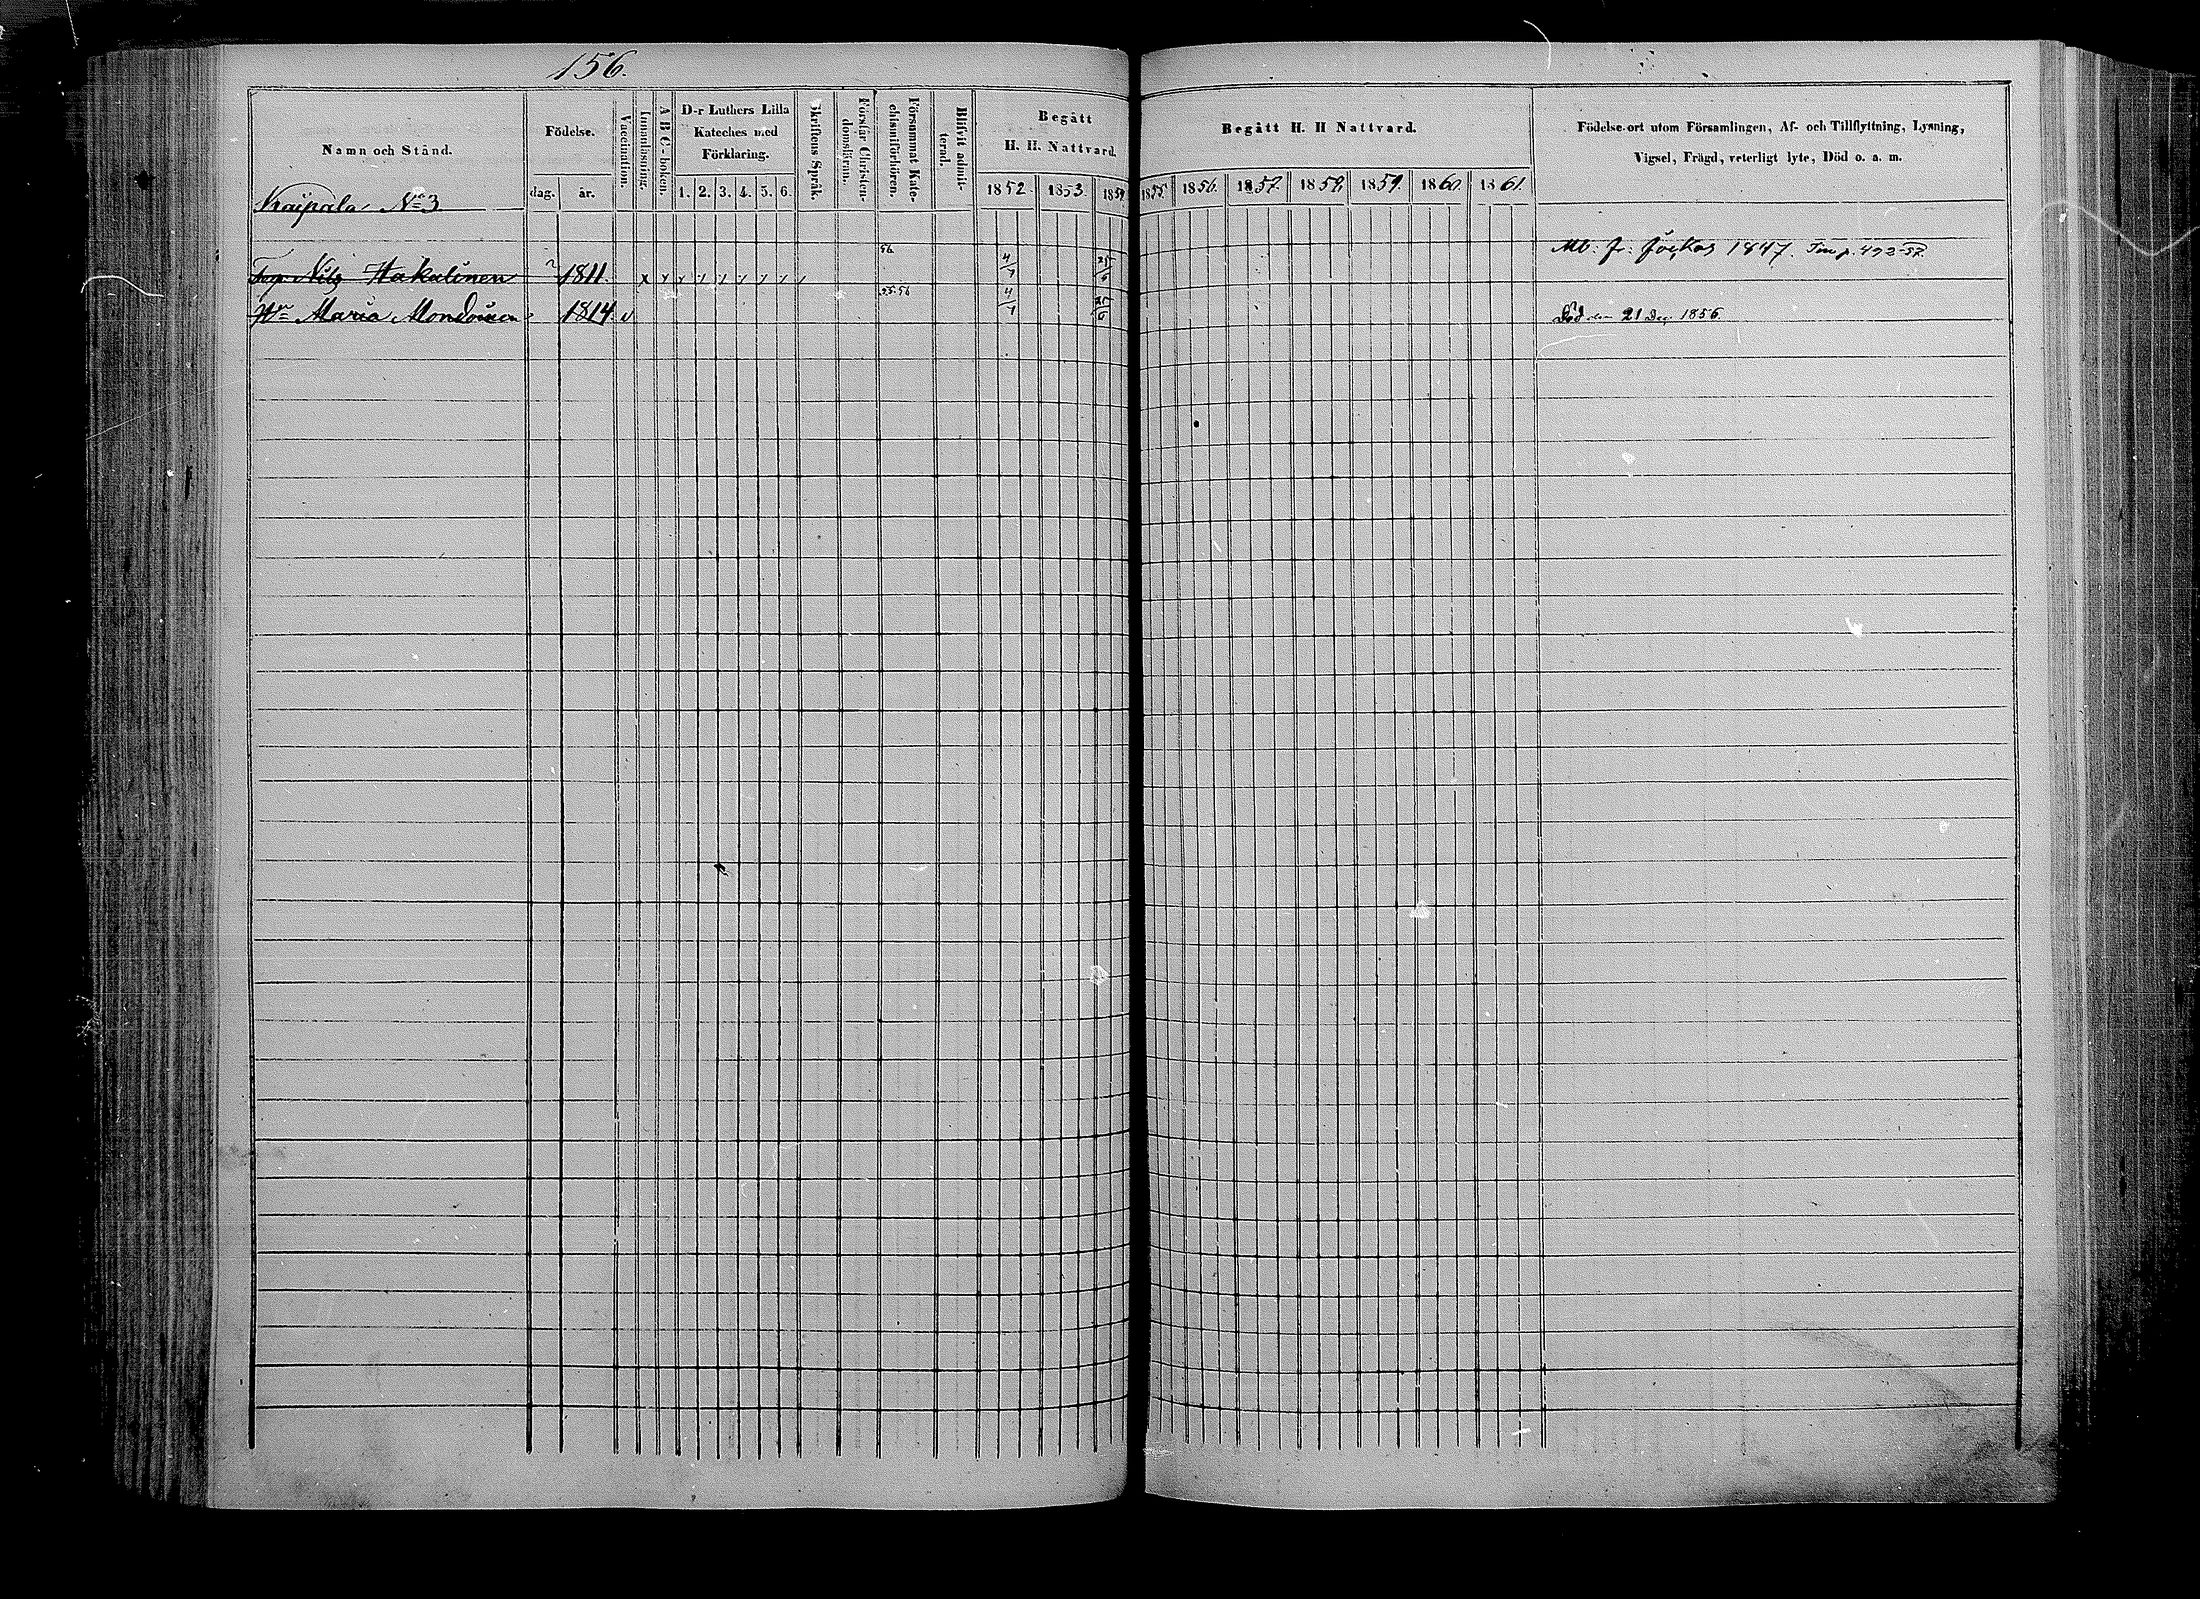 156.
Namn och Stånd.
Födelse.
dag. år.
Vaccination.
Innanläsning.
A B C-boken.
D-r Luthers Lilla
Kateches med
Förklaring.
1. 2. 3. 4. 5. 6.
Skriftens Språk.
Förstår Christen-
domsläran.
Försummat Kate-
chismiförhören.
Blifvit admit-
terad.
Begått
H. H. Nattvard.
1852. 1853. 1854
Begått H. H Nattvard.
1855. 1856. 1857. 1858. 1859. 1860. 1861.
Födelse-ort utom Församlingen, Af- och Tillflyttning, Lysning,
Vigsel, Frägd, veterligt lyte, Död o. a. m.
No 3.
Nils Hakulinen 1811. x 56 4/7 25/6 Mb: fr: Jockas 1847. p. 492-57.
Maria 1814 v 55.56 4/7 25/6 Död den 21 Dec 1856.